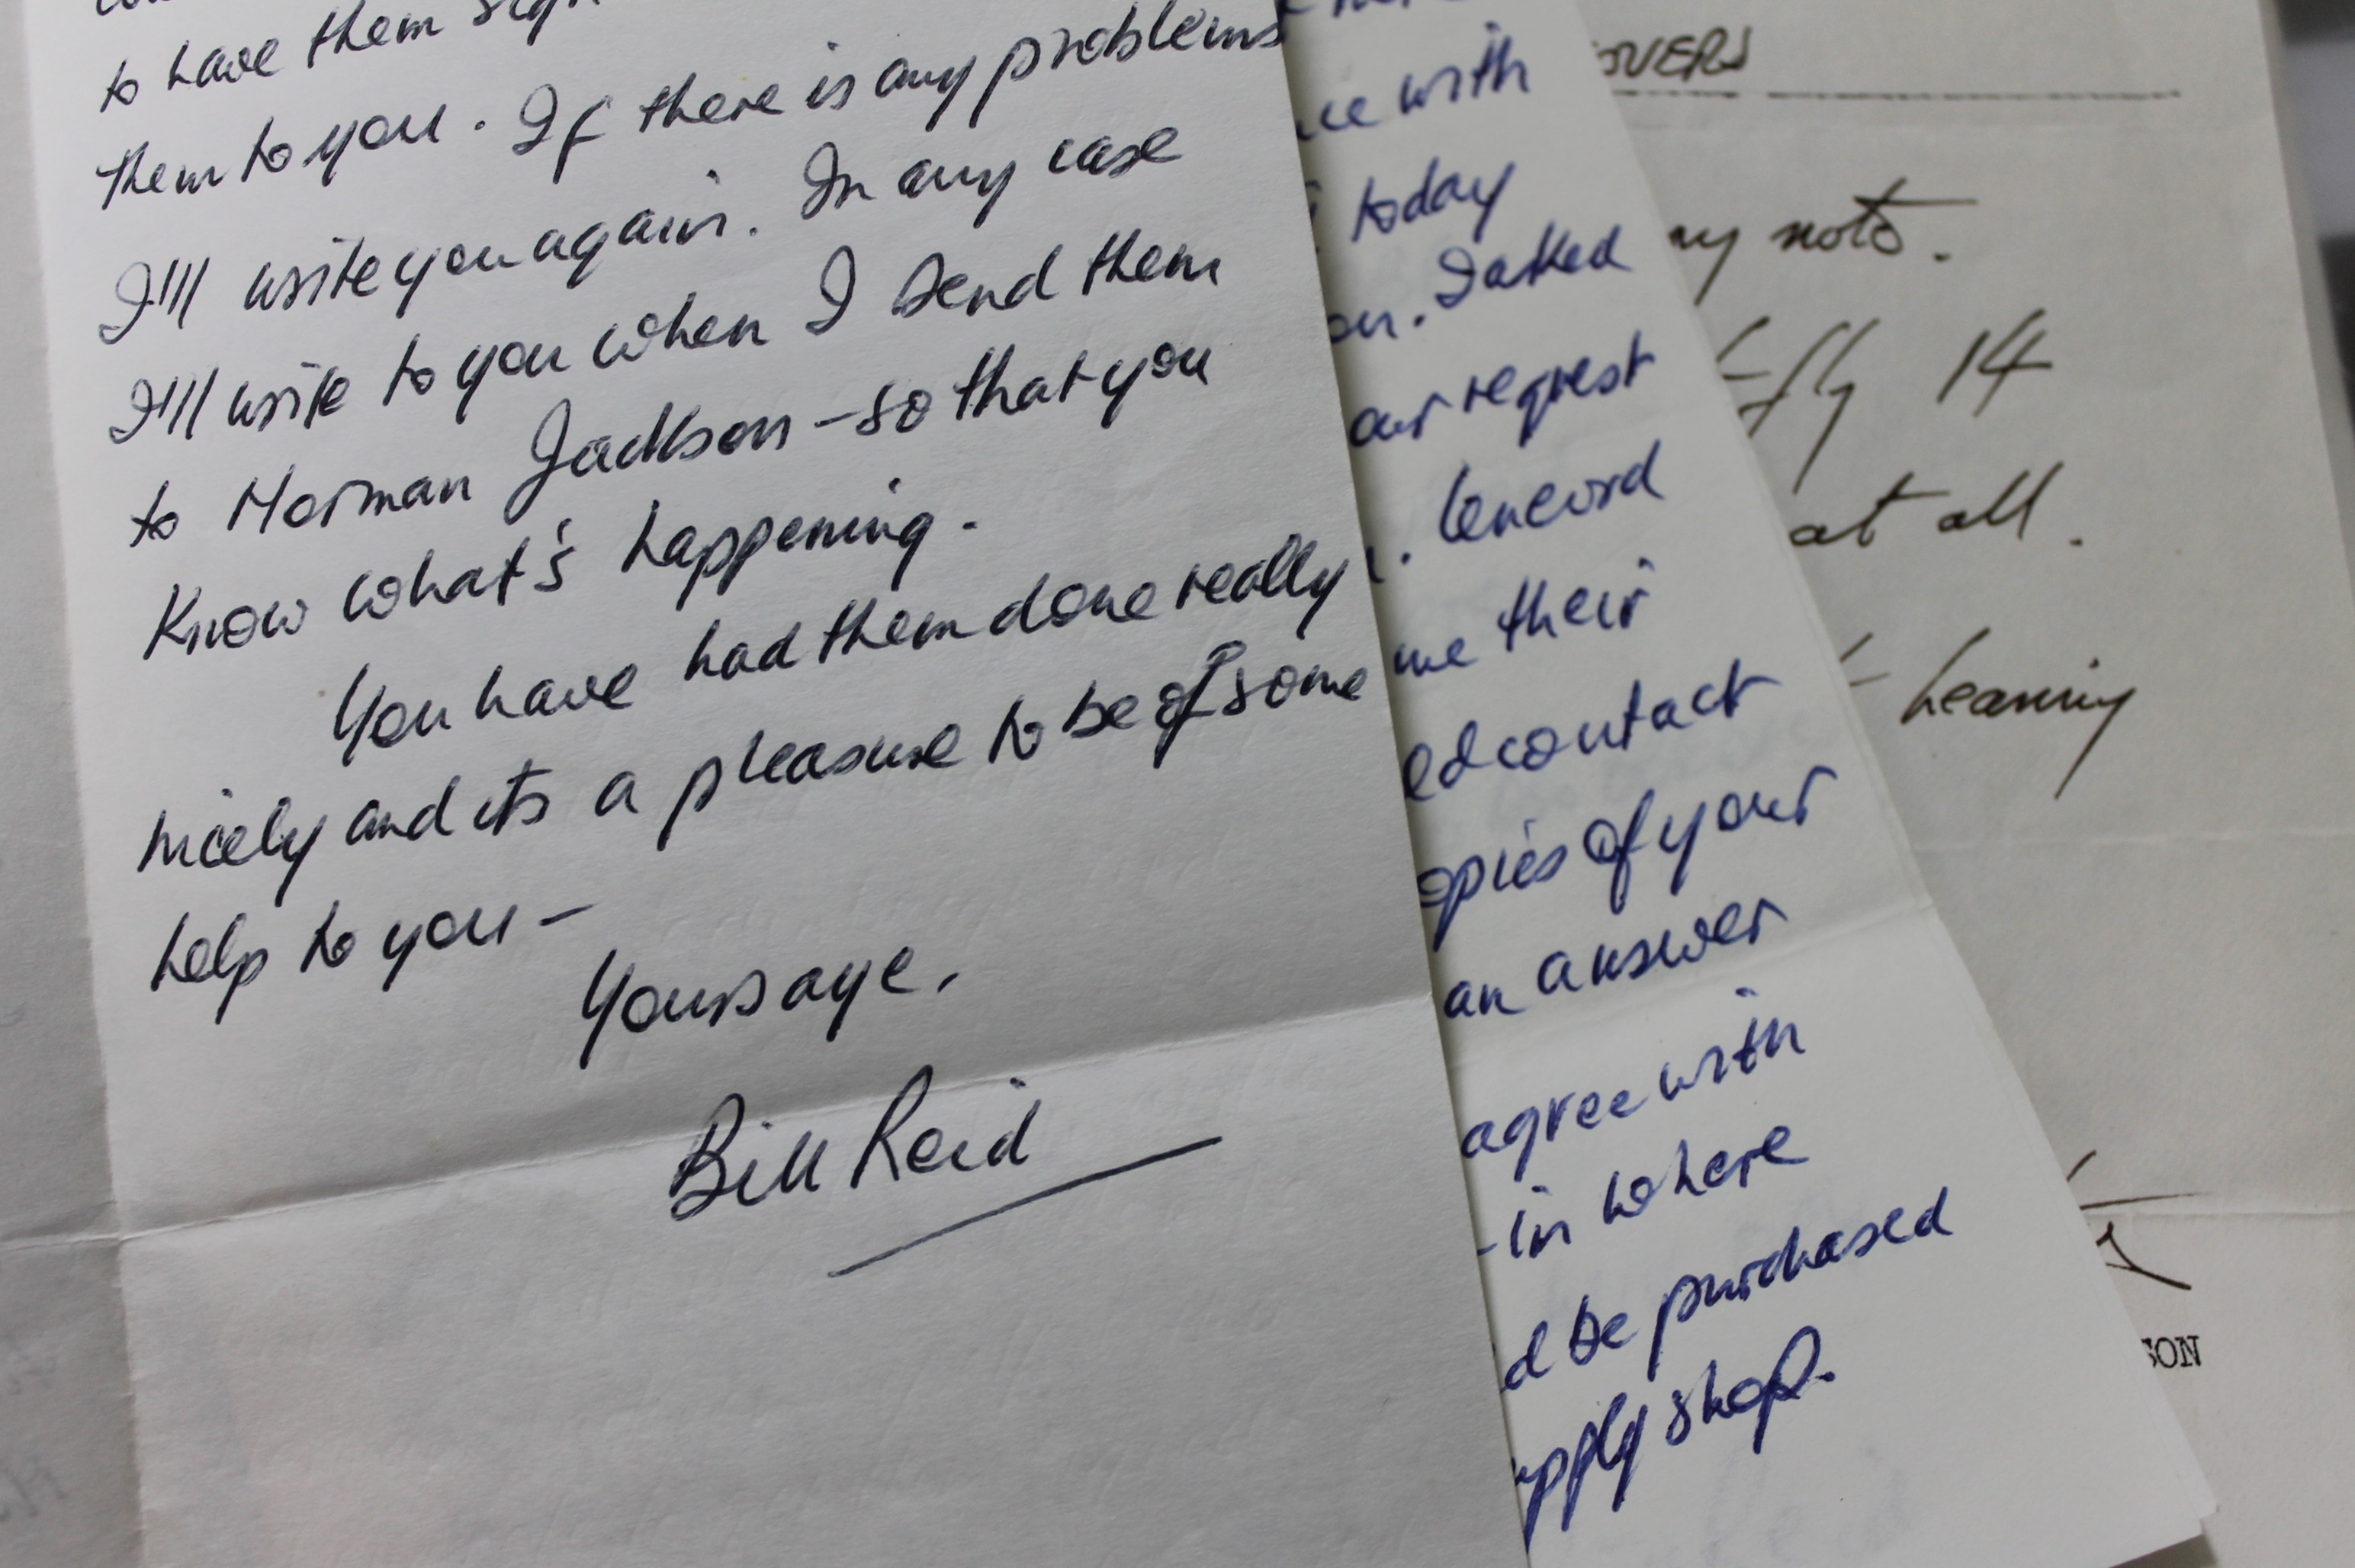 to have them
them to you. If there is any problems
I'll write you again. In any case
I'll write to you when I send them
to Norman Jackson - so that you
know what's happening.
You have had them done really
nicely and its a pleasure to be of some
help to you -
Yours aye,
Bill Reid
with
today
on. I asked
our request
. Concord
me their
ed contact
opies of your
an answer
agree with
- in where
d be purchased
upply shop.
OVERS
my note.
14
at all.
hearing
SON